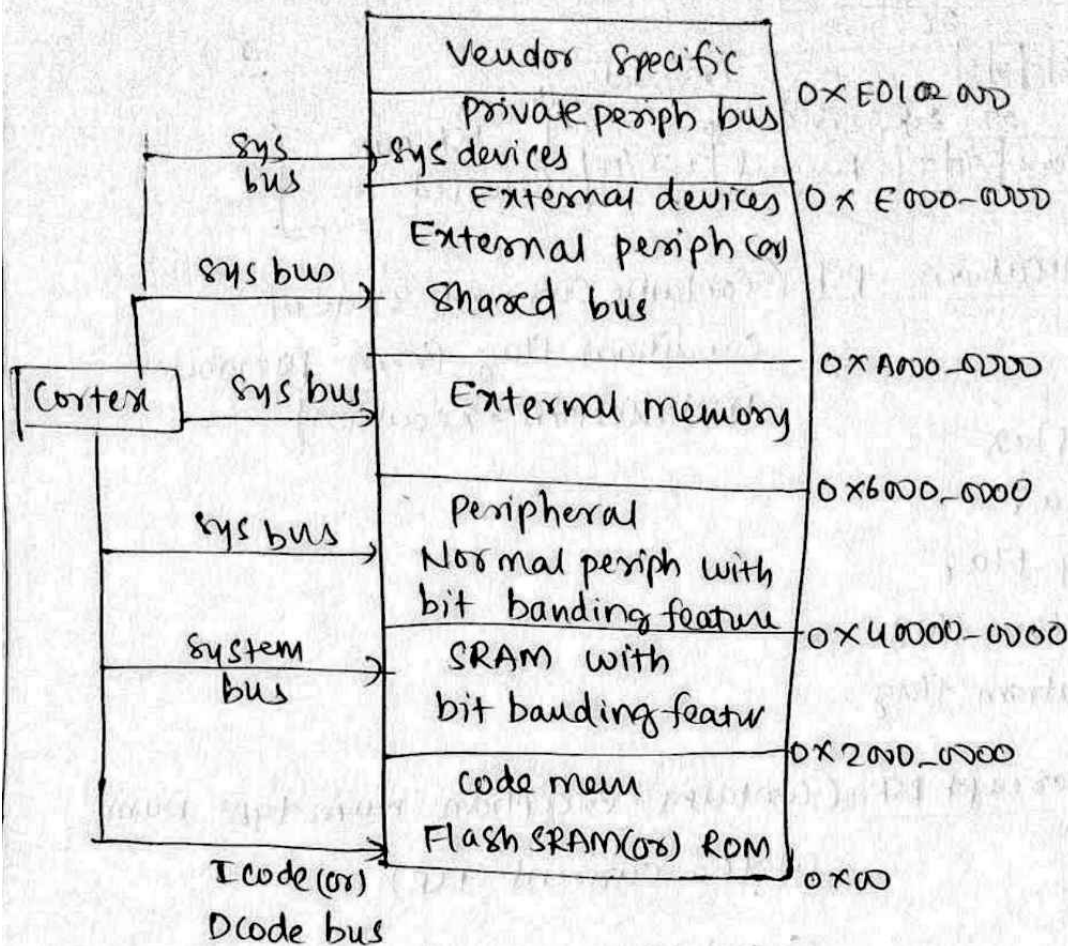 Vendor Specific
0xE010 0000
private periph bus
sys
bus
sys devices
External devices
0x E000-0000
External periph (or)
sys bus
Shared bus
0xA000-0000
Cortex
sys bus
External memory
0x6000-0000
Peripheral
sys bus
Normal periph with
bit banding feature
0x40000-0000
system
bus
SRAM with
bit banding featur
0x2000-0000
code mem
Flash SRAM(or) ROM
0x00
Icode (or)
Dcode bus